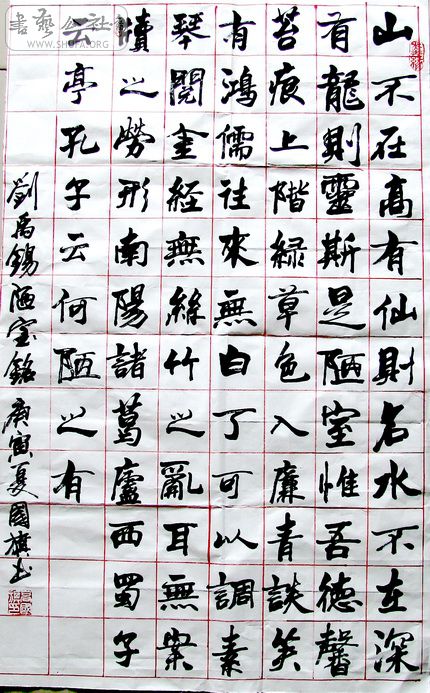 山不在高有仙則名水不在深
有龍則靈斯是陋室惟吾德馨
苔痕上階綠草色入廉青談笑
有鴻儒往來無白丁可以調素
琴閱金經無絲竹之亂耳無案
牘之勞形南陽諸葛廬西蜀子
云亭孔子云何陋之有
劉禹錫陋室銘 庚寅夏國旗书
書藝公社
WWW.SHUFA.ORG